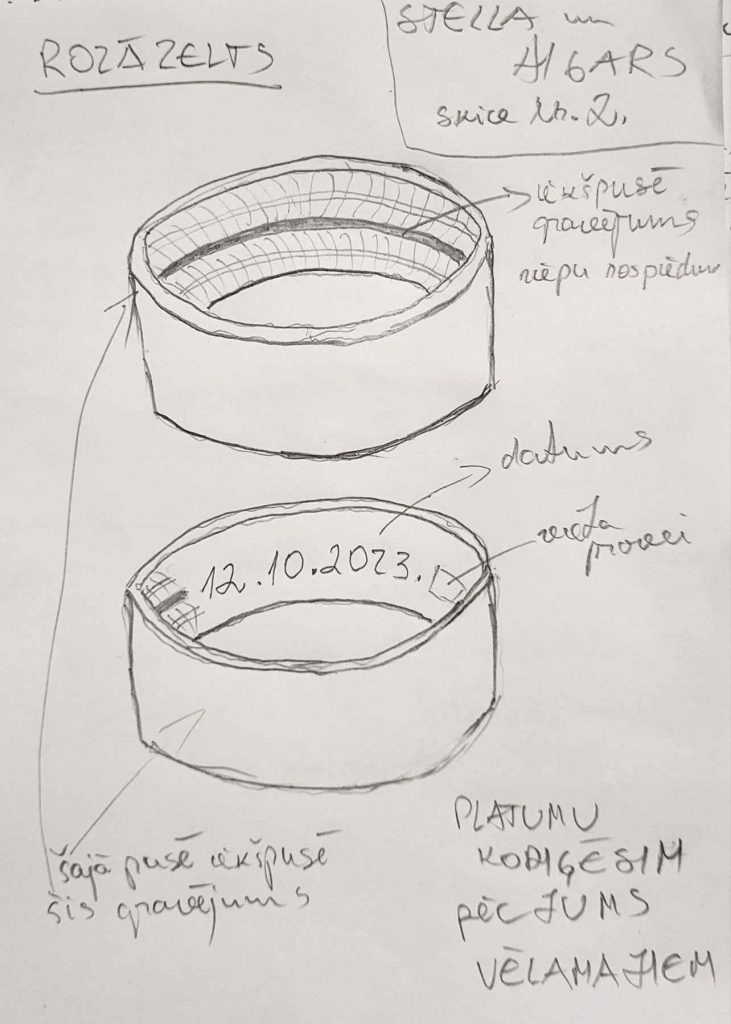 ROZĀ ZELTS
STELLA un
AIGARS
skice Nr. 2.
iekšpusē
gravējums
riepu nospiedums
datums
vieta
provei
12.10.2023.
šajā pusē iekšpusē
šis gravējums
PLATUMU
KORIĢĒSIM
PĒC JUMS
VĒLAMAJIEM